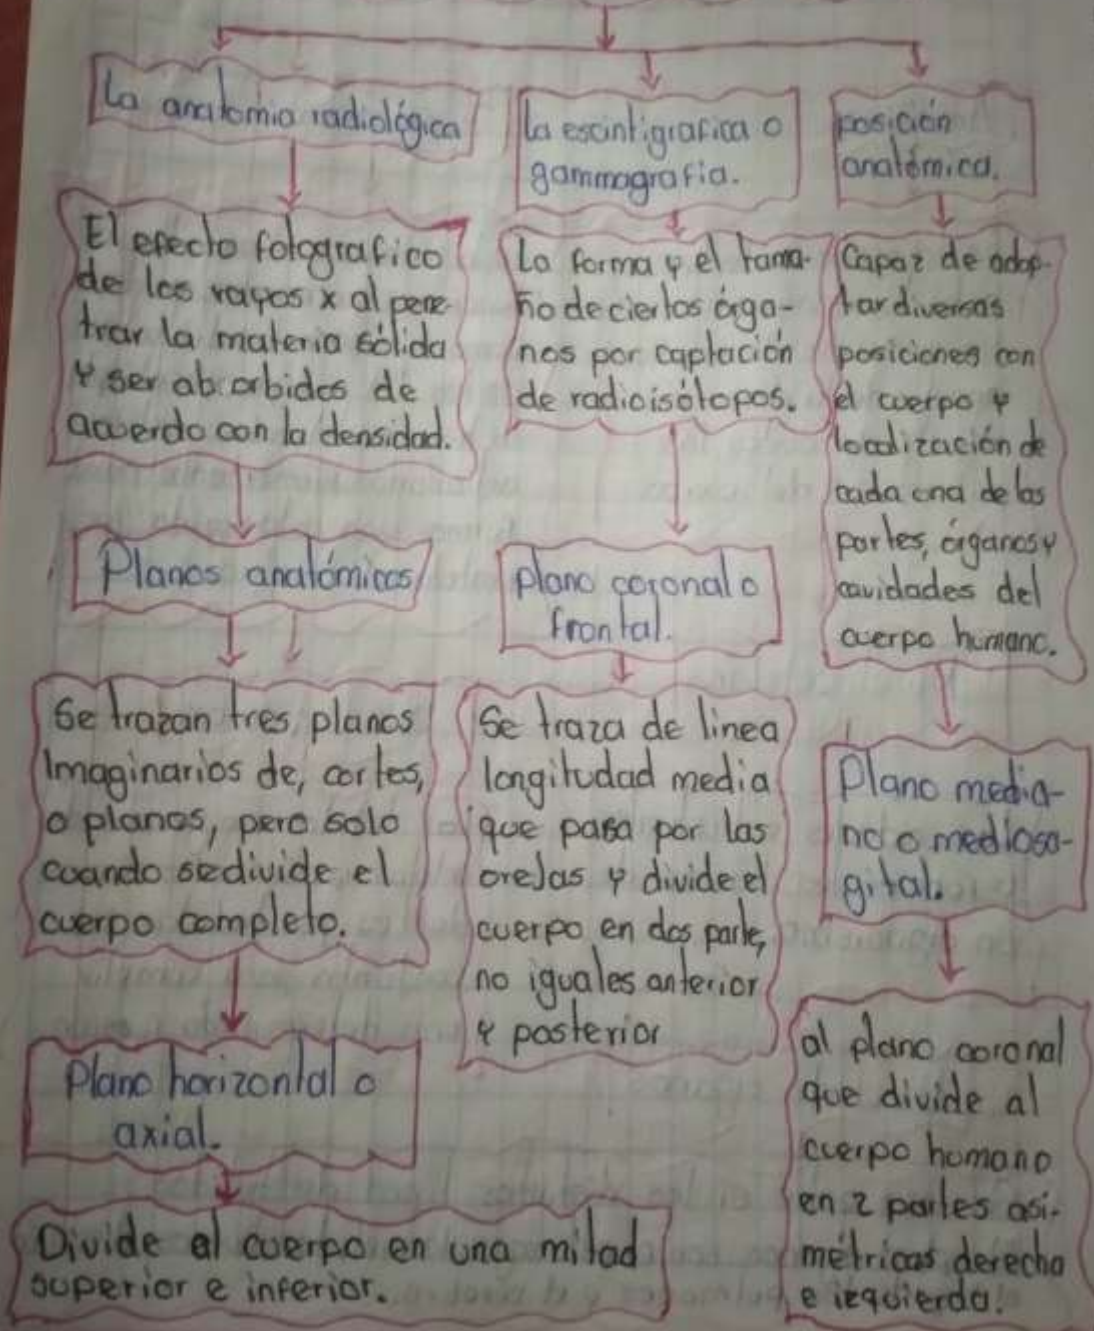 La anatomia radiológica
El efecto fotografico
de los rayos x al pene-
trar la materia sólida
y ser absorbidos de
acuerdo con la densidad.
Planos anatómicos
Se trazan tres planos
Imaginarios de, cortes,
o planos, pero solo
cuando sedivide el
cuerpo completo.
Plano horizontal o
axial.
Divide el cuerpo en una mitad
superior e inferior.
La escintigrafica o
gammografia.
La forma y el tama-
ño de ciertos órga-
nos por captación
de radioisótopos.
plano coronal o
frontal.
Se traza de linea
longitudad media
que pasa por las
orejas y divide el
cuerpo en dos parte,
no iguales anterior
y posterior
posición
anatómica.
Capaz de adop-
tar diversas
posiciones con
el cuerpo y
localización de
cada una de las
partes, órganos y
cavidades del
cuerpo humano.
Plano media-
no o mediosa-
gital.
al plano coronal
que divide al
cuerpo humano
en 2 partes asi-
métricas derecha
e izquierda.